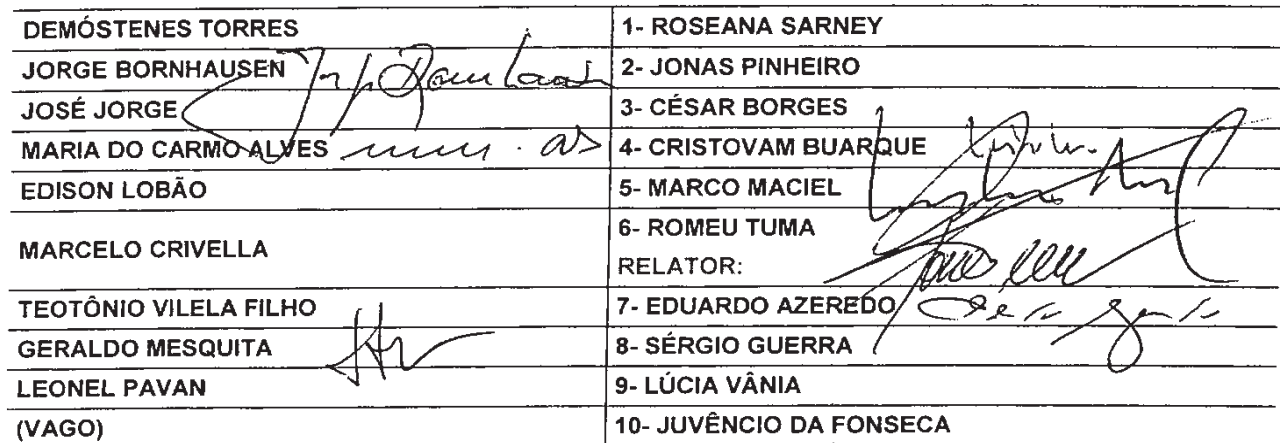 DEMÓSTENES TORRES 1- ROSEANA SARNEY
JORGE BORNHAUSEN 2- JONAS PINHEIRO
JOSÉ JORGE 3- CÉSAR BORGES
MARIA DO CARMO ALVES 4- CRISTOVAM BUARQUE
EDISON LOBÃO 5- MARCO MACIEL
MARCELO CRIVELLA 6- ROMEU TUMA
RELATOR:
TEOTÔNIO VILELA FILHO 7- EDUARDO AZEREDO
GERALDO MESQUITA 8- SÉRGIO GUERRA
LEONEL PAVAN 9- LÚCIA VÂNIA
(VAGO) 10- JUVÊNCIO DA FONSECA